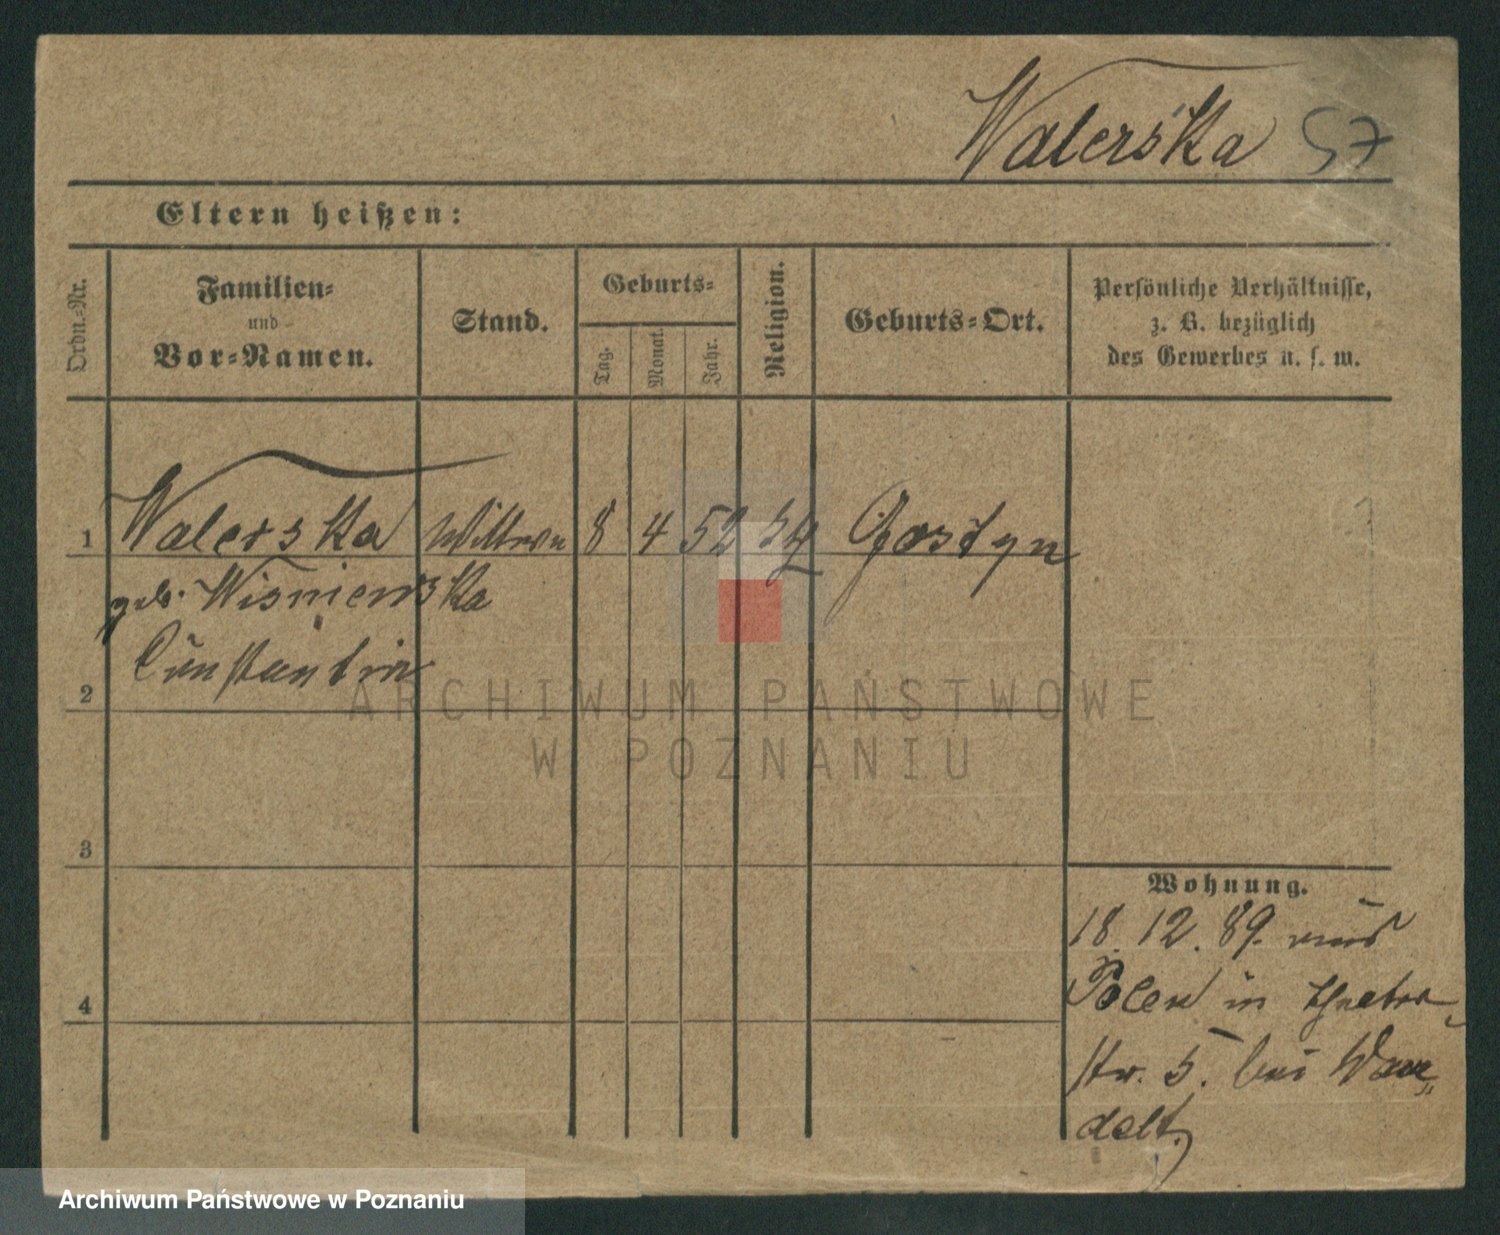 Walerska 57
Eltern heißen:
Ordn.-Nr.
Familien-
und
Vor-Namen.
Stand.
Geburts-
Tag.
Monat.
Jahr.
Religion.
Geburts-Ort.
Persönliche Verhältnisse,
z. B. bezüglich
des Gewerbes u. s. w.
1 Walerska Wittwe 8 4 52 Gostyn
geb. Wisniewska
Constantin
2
3
4
Wohnung.
18. 12. 89. aus
Polen in Theater-
str. 5. bei Wan-
delt.
ARCHIWUM PAŃSTWOWE
W POZNANIU
Archiwum Państwowe w Poznaniu